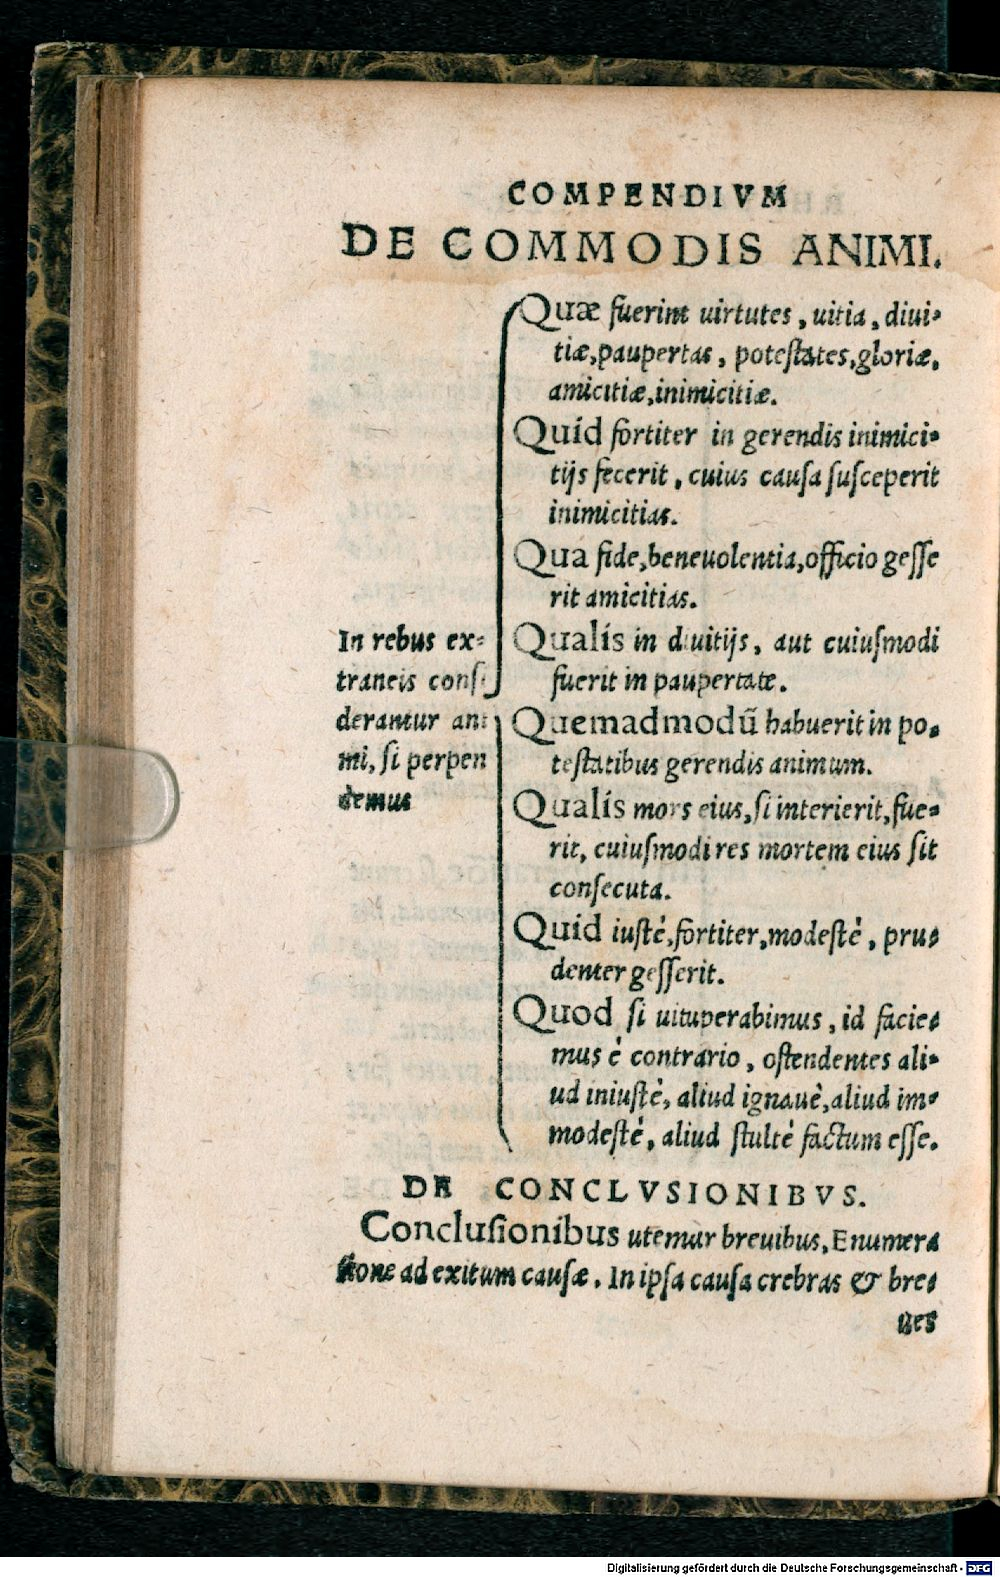 COMPENDIVM
DE COMMODIS ANIMI.
In rebus ex-
traneis consi
derantur ani
mi, si perpen
demus
Quæ fuerint uirtutes, uitia, diui-
tiæ, paupertas, potestates, gloriæ,
amicitiæ, inimicitiæ.
Quid fortiter in gerendis inimici-
tijs fecerit, cuius causa susceperit
inimicitias.
Qua fide, beneuolentia, officio gesse
rit amicitias.
Qualis in diuitijs, aut cuiusmodi
fuerit in paupertate.
Quemadmodū habuerit in po-
testatibus gerendis animum.
Qualis mors eius, si interierit, fue-
rit, cuiusmodi res mortem eius sit
consecuta.
Quid iustè, fortiter, modestè, pru-
denter gesserit.
Quod si uituperabimus, id facie-
mus è contrario, ostendentes ali-
ud iniustè, aliud ignauè, aliud im-
modestè, aliud stultè factum esse.
DE CONCLVSIONIBVS.
Conclusionibus utemur breuibus, Enumera
tione ad exitum causæ. In ipsa causa crebras & bre-
ues
Digitalisierung gefördert durch die Deutsche Forschungsgemeinschaft - DFG